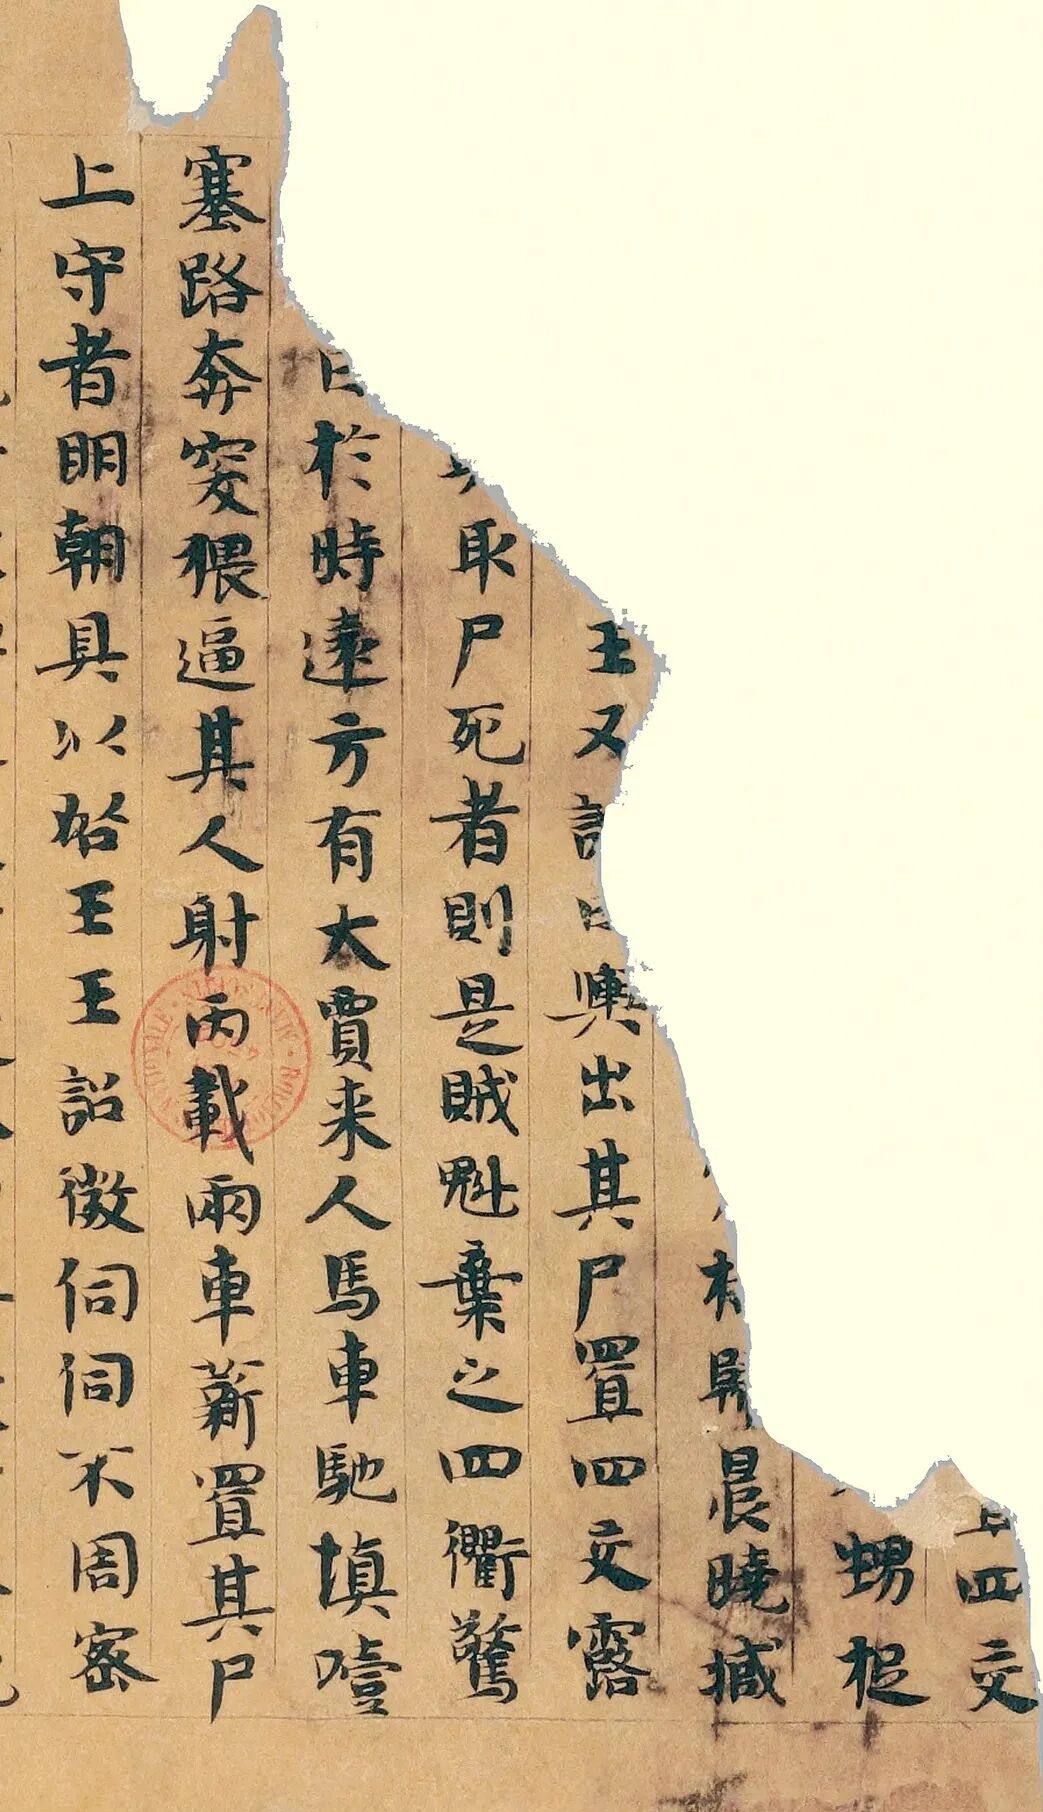 四交
甥捉
歸晨曉臧
王又詔曰輿出其尸置四交露
取尸死者則是賊魁棄之四衢驚
日於時遠方有大賈来人馬車馳填噎
塞路奔突猥逼其人射丙載兩車薪置其尸
上守者明朝具以啓王王詔微伺伺不周密